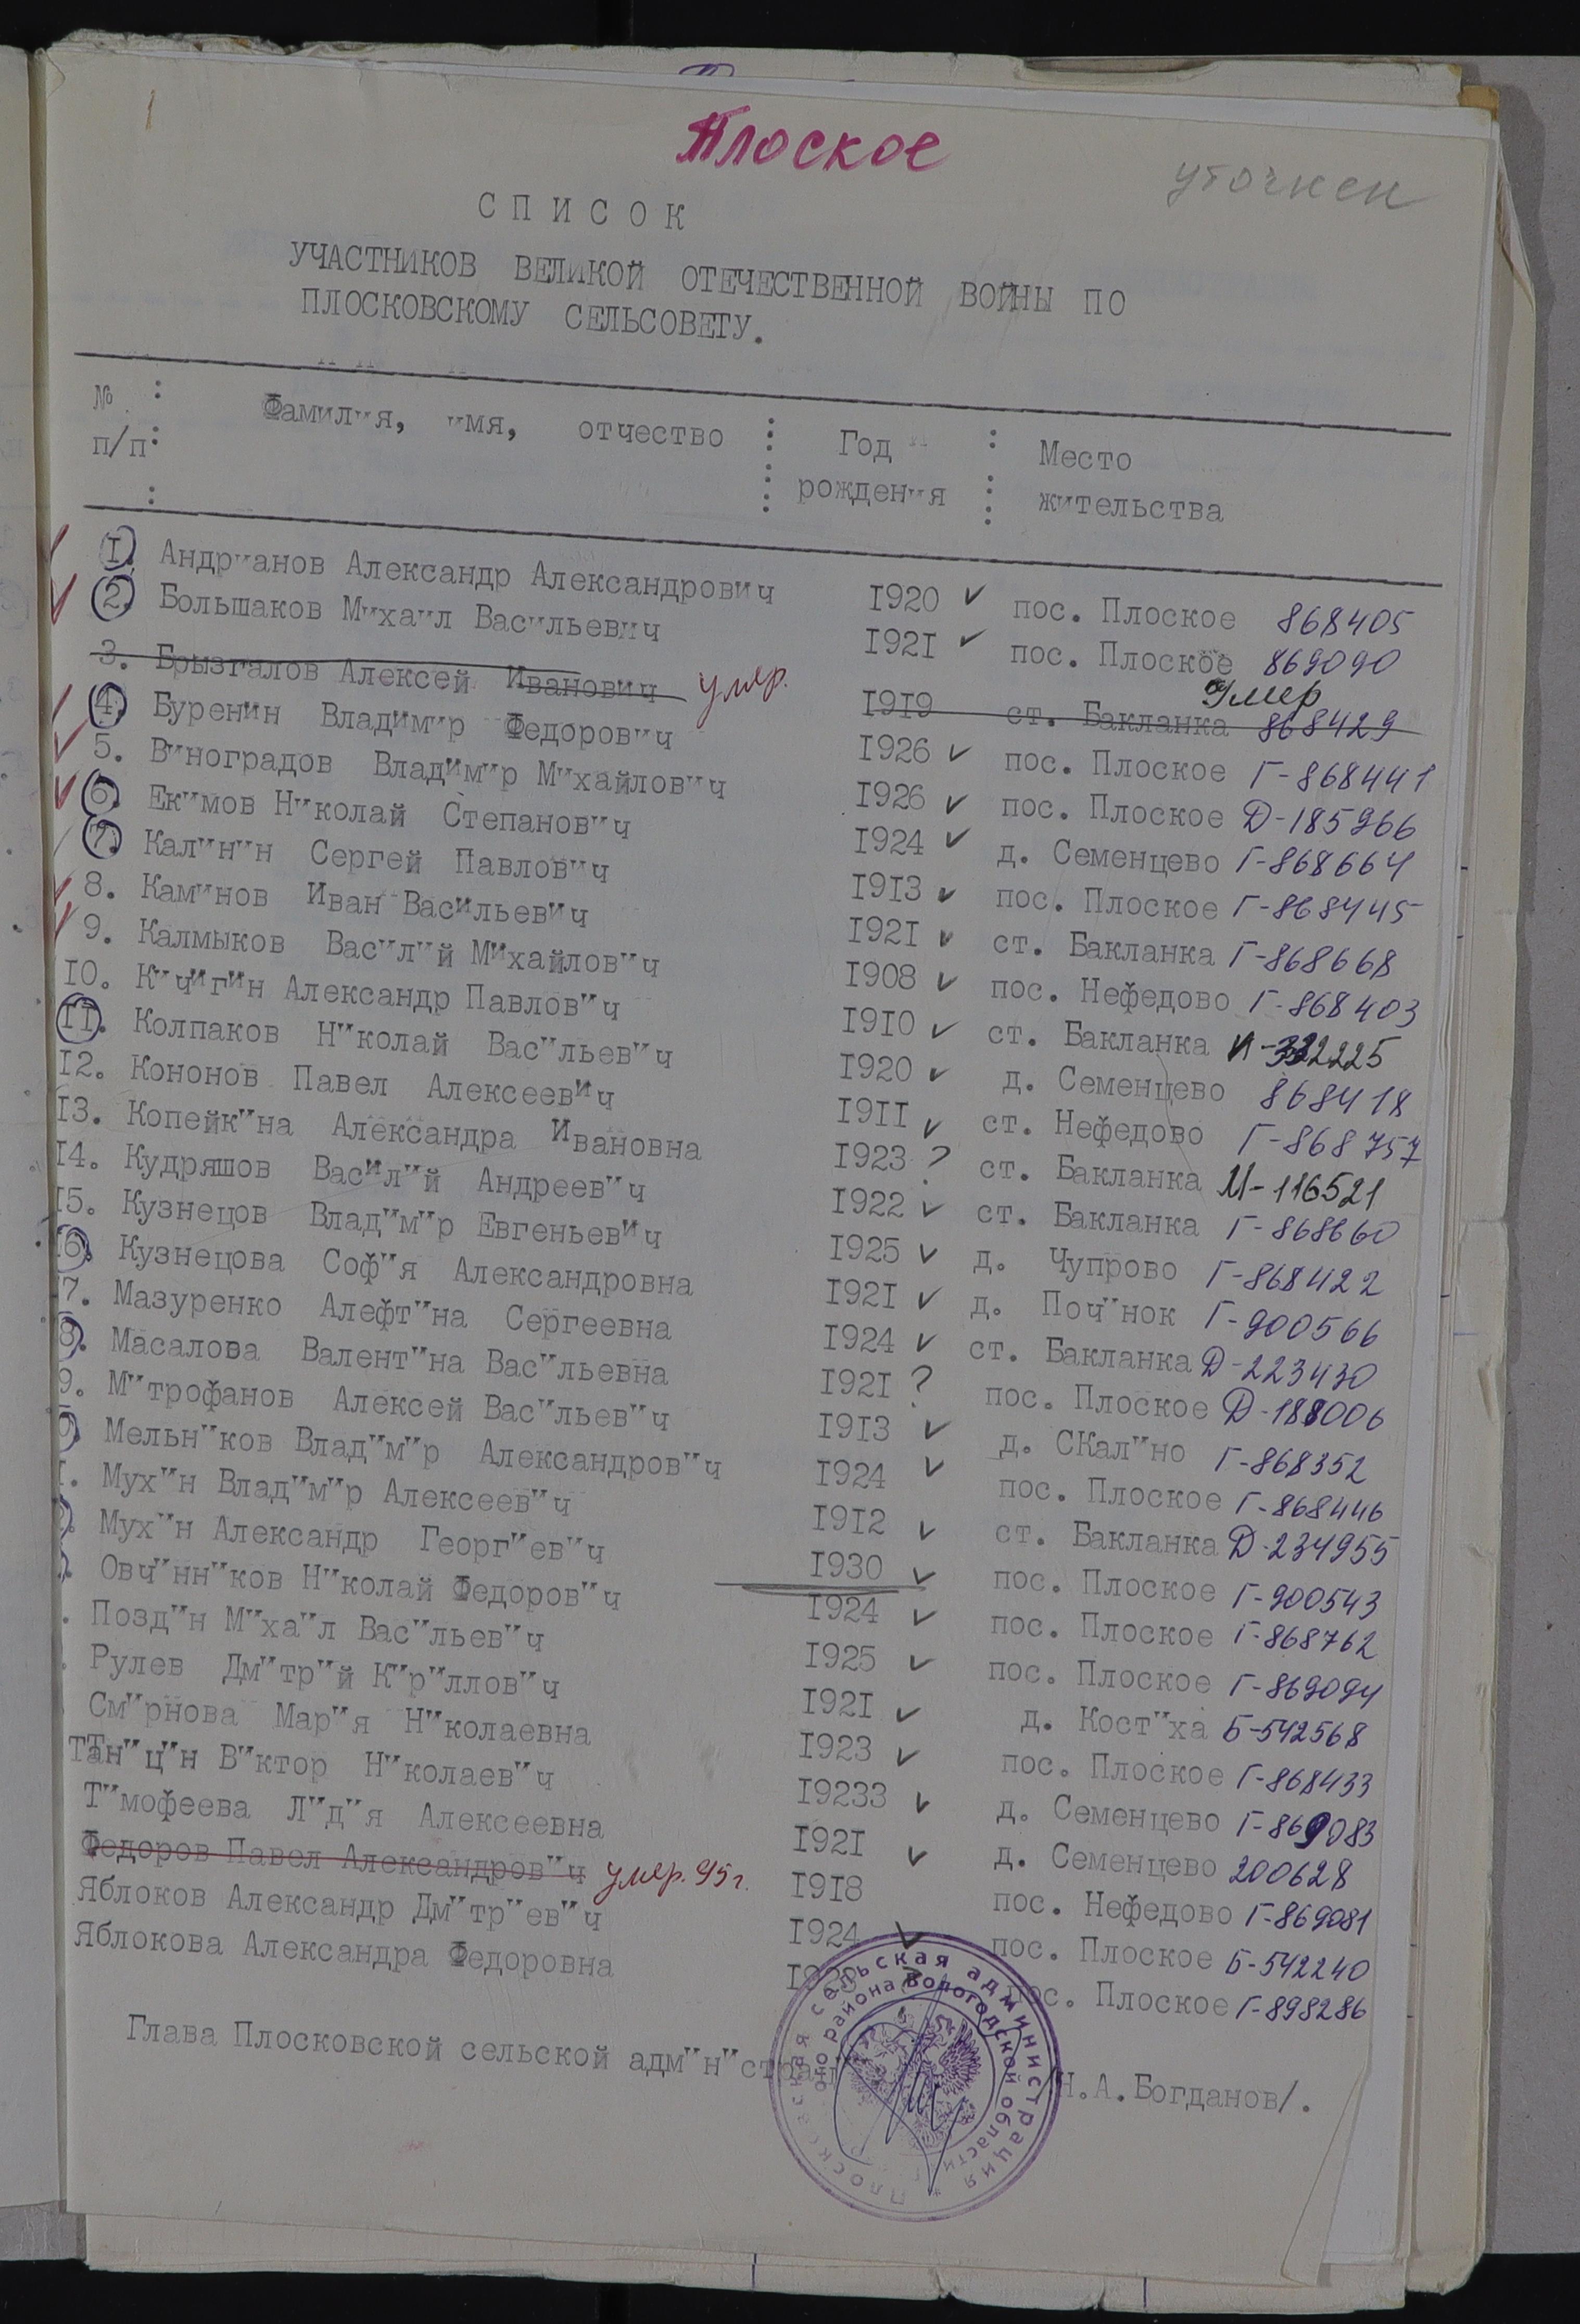 1
Плоское
уточнен
СПИСОК
УЧАСТНИКОВ ВЕЛИКОЙ ОТЕЧЕСТВЕННОЙ ВОЙНЫ ПО
ПЛОСКОВСКОМУ СЕЛЬСОВЕТУ.
№ : Фамилия, имя, отчество : Год : Место
п/п: : рождения : жительства
I. Андрианов Александр Александрович I920 ✓ пос. Плоское 868405
2. Большаков Михаил Васильевич I92I ✓ пос. Плоское 869090
3. Брызгалов Алексей Иванович умер. I9I9 ст. Бакланка 868429 Умер
4. Буренин Владимир Федорович I926 ✓ пос. Плоское Г-868441
5. Виноградов Владимир Михайлович I926 ✓ пос. Плоское Д-185966
6. Екимов Николай Степанович I924 ✓ д. Семенцево Г-868664
7. Калинин Сергей Павлович I9I3 ✓ пос. Плоское Г-868445
8. Каминов Иван Васильевич I92I ✓ ст. Бакланка Г-868668
9. Калмыков Василий Михайлович I908 ✓ пос. Нефедово Г-868403
I0. Кичигин Александр Павлович I9I0 ✓ ст. Бакланка
II. Колпаков Николай Васильевич I920 ✓ д. Семенцево 868418
I2. Кононов Павел Алексеевич I9II ✓ ст. Нефедово Г-868757
I3. Копейкина Александра Ивановна I923 ? ст. Бакланка И-116521
I4. Кудряшов Василий Андреевич I922 ✓ ст. Бакланка Г-868660
I5. Кузнецов Владимир Евгеньевич I925 ✓ д. Чупрово Г-868422
I6. Кузнецова София Александровна I92I ✓ д. Починок Г-900566
7. Мазуренко Алефтина Сергеевна I924 ✓ ст. Бакланка Д-223430
8. Масалова Валентина Васильевна I92I ? пос. Плоское Д-188006
9. Митрофанов Алексей Васильевич I9I3 ✓ д. СКалино Г-868352
Мельников Владимир Александрович I924 ✓ пос. Плоское Г-868446
I. Мухин Владимир Алексеевич I9I2 ✓ ст. Бакланка Д-234955
Мухин Александр Георгиевич I930 ✓ пос. Плоское Г-900543
Овчинников Николай Федорович I924 ✓ пос. Плоское Г-868762
Поздин Михаил Васильевич I925 ✓ пос. Плоское Г-869094
Рулев Дмитрий Кириллович I92I ✓ д. Костиха Б-542568
Смирнова Мария Николаевна I923 ✓ пос. Плоское Г-868433
Таницин Виктор Николаевич I9233 ✓ д. Семенцево Г-869083
Тимофеева Лидия Алексеевна I92I ✓ д. Семенцево 200628
Федоров Павел Александрович умер. 95г. I9I8 пос. Нефедово Г-869081
Яблоков Александр Дмитриевич I924 ✓ пос. Плоское Б-542240
Яблокова Александра Федоровна пос. Плоское Г-898286
Глава Плосковской сельской администрац Н.А.Богданов/.
Плосковская сельская администрация *
района Вологодской области